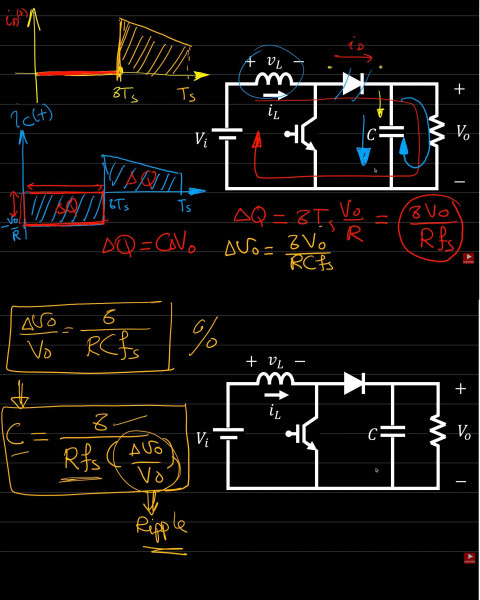 i_D(t)
δTs Ts
i_C(t)
ΔQ ΔQ
δTs Ts
-Vo/R
ΔQ = CΔVo
i_D
+ v_L −
i_L
V_i
C
V_o
+
−
ΔQ = δTs Vo/R = δVo/Rfs
ΔVo = δVo/RCfs
ΔVo/Vo = δ/RCfs %
C = δ/Rfs (ΔVo/Vo)
Ripple
+ v_L −
i_L
V_i
C
V_o
+
−